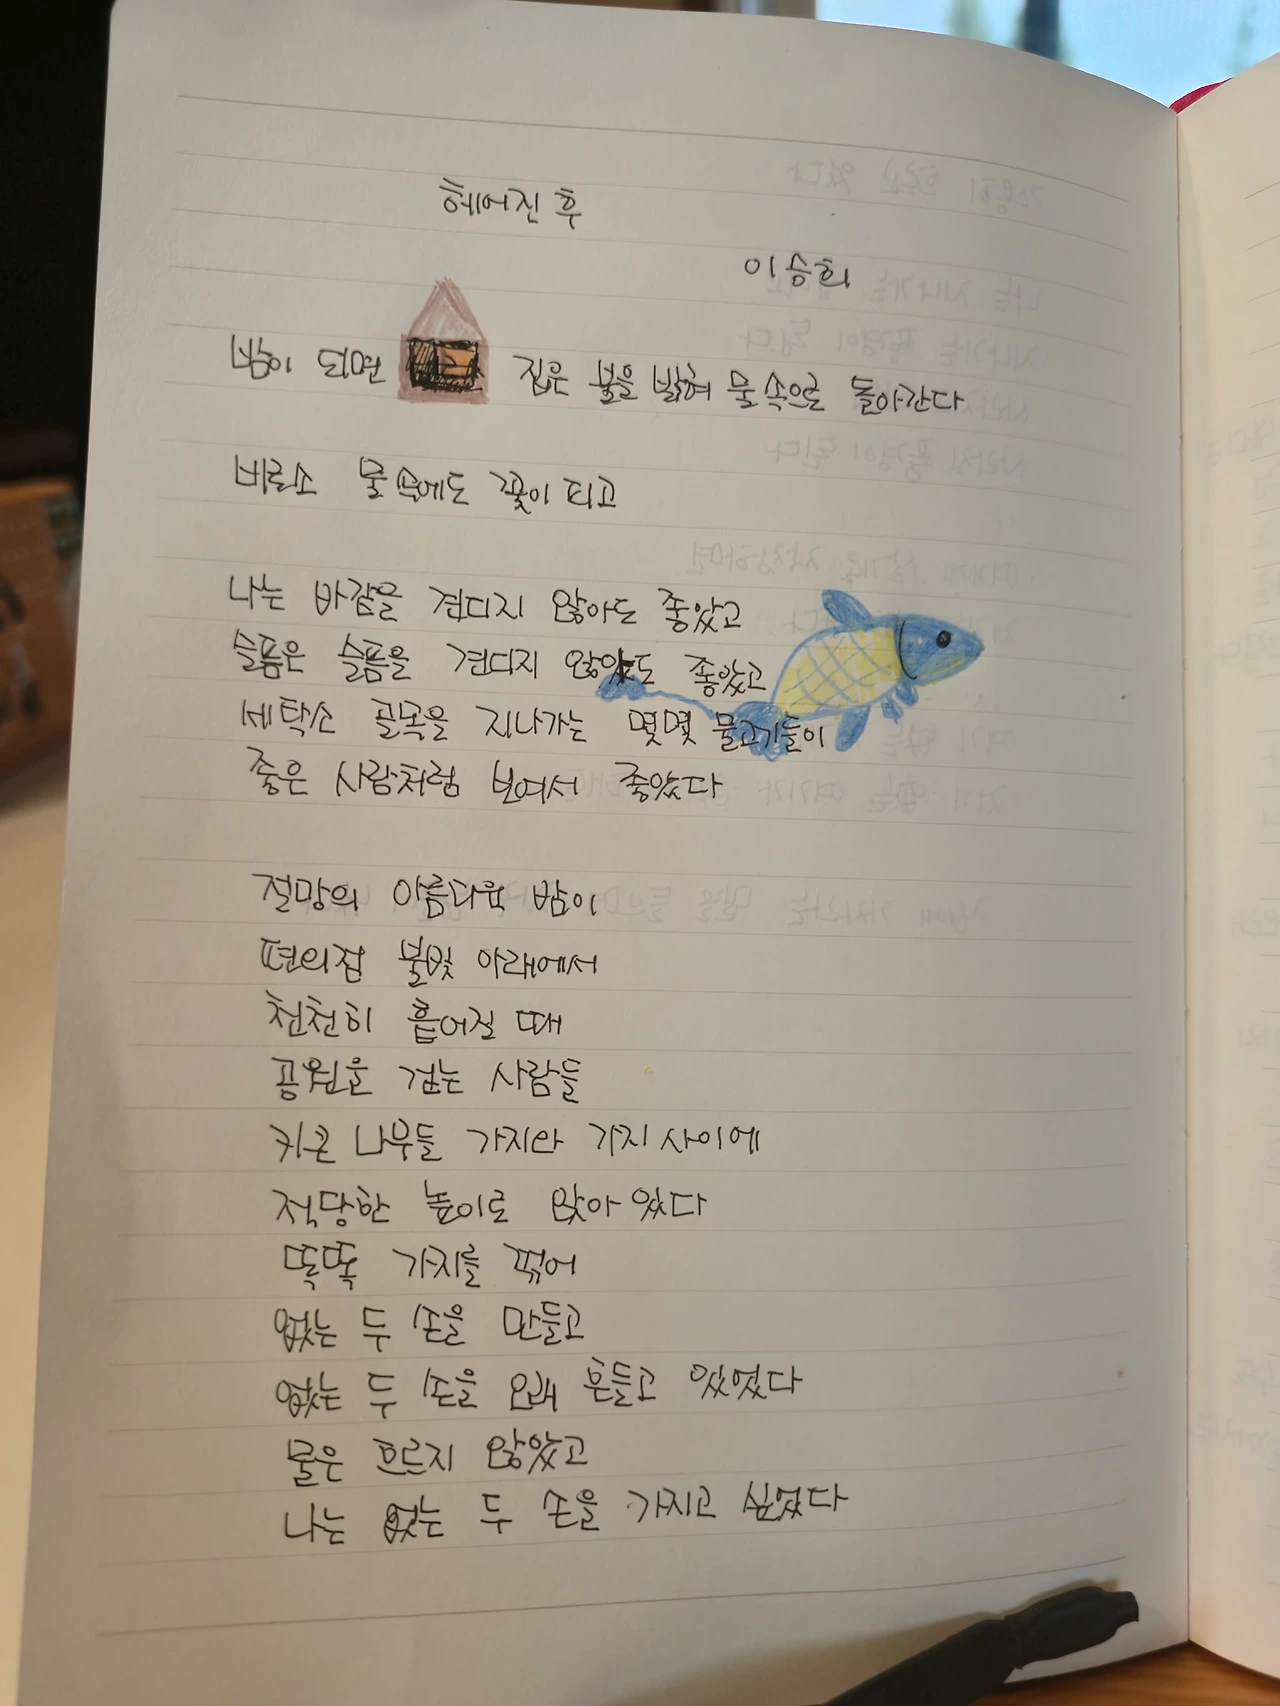 헤어진 후
이승희
밤이 되면 집은 불을 밝혀 물 속으로 돌아간다
비로소 물 속에도 꽃이 피고
나는 바깥을 견디지 않아도 좋았고
슬픔은 슬픔을 견디지 않아도 좋았고
세탁소 골목을 지나가는 몇몇 물고기들이
좋은 사람처럼 보여서 좋았다
절망의 아름다운 밤이
편의점 불빛 아래에서
천천히 흩어질 때
공원을 걷는 사람들
키 큰 나무들 가지와 가지 사이에
적당한 높이로 앉아 있다
똑똑 가지를 꺾어
없는 두 손을 만들고
없는 두 손을 오래 흔들고 있었다
물은 흐르지 않았고
나는 없는 두 손을 가지고 싶었다